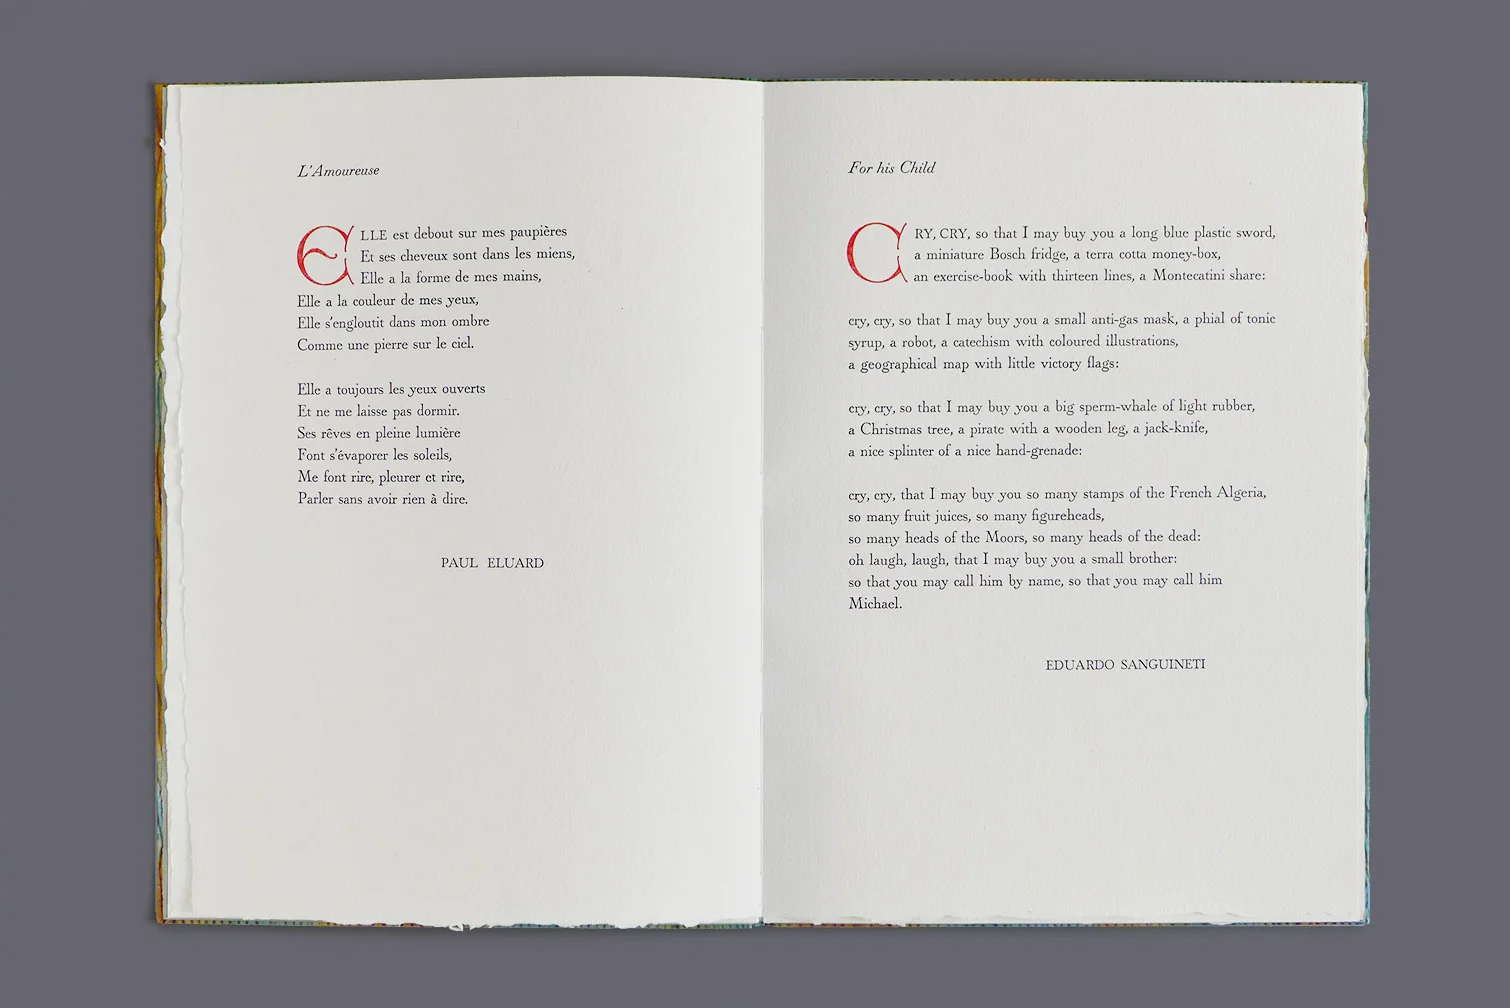 L'Amoureuse
ELLE est debout sur mes paupières
Et ses cheveux sont dans les miens,
Elle a la forme de mes mains,
Elle a la couleur de mes yeux,
Elle s'engloutit dans mon ombre
Comme une pierre sur le ciel.
Elle a toujours les yeux ouverts
Et ne me laisse pas dormir.
Ses rêves en pleine lumière
Font s'évaporer les soleils,
Me font rire, pleurer et rire,
Parler sans avoir rien à dire.
PAUL ELUARD
For his Child
CRY, CRY, so that I may buy you a long blue plastic sword,
a miniature Bosch fridge, a terra cotta money-box,
an exercise-book with thirteen lines, a Montecatini share:
cry, cry, so that I may buy you a small anti-gas mask, a phial of tonic
syrup, a robot, a catechism with coloured illustrations,
a geographical map with little victory flags:
cry, cry, so that I may buy you a big sperm-whale of light rubber,
a Christmas tree, a pirate with a wooden leg, a jack-knife,
a nice splinter of a nice hand-grenade:
cry, cry, that I may buy you so many stamps of the French Algeria,
so many fruit juices, so many figureheads,
so many heads of the Moors, so many heads of the dead:
oh laugh, laugh, that I may buy you a small brother:
so that you may call him by name, so that you may call him
Michael.
EDUARDO SANGUINETI